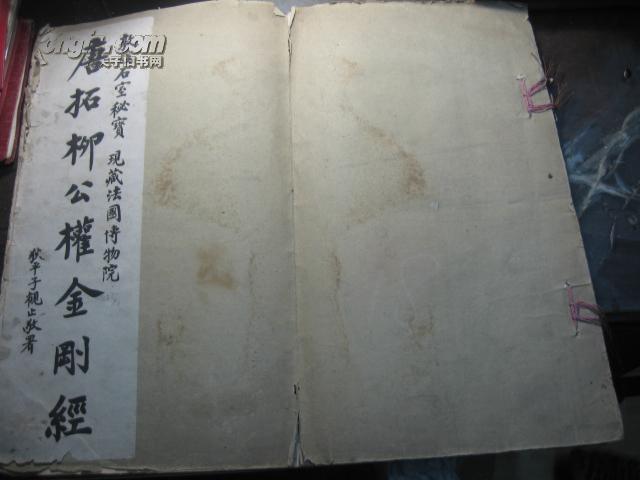 石室秘寶 現藏法國博物院
唐拓柳公權金剛經
狄平子觀止敬署
夫子旧书网